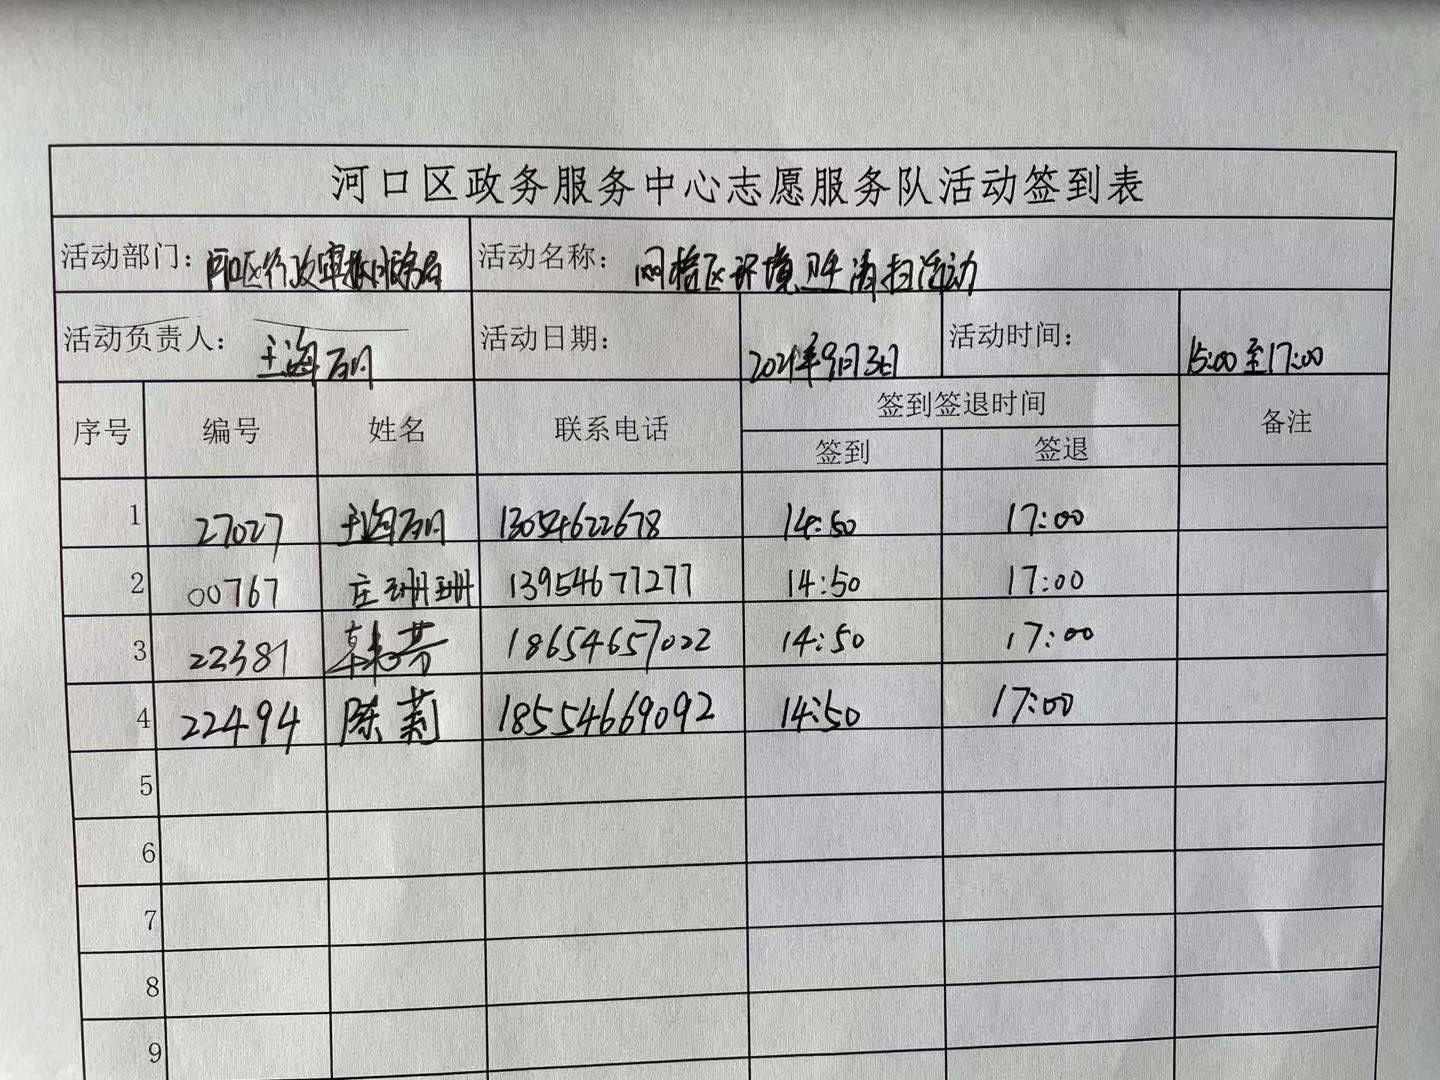 河口区政务服务中心志愿服务队活动签到表
活动部门：河口区行政审批服务局 活动名称：网格区环境卫生清扫活动
活动负责人：王海丽 活动日期： 2021年9月3日 活动时间： 15:00至17:00
序号 编号 姓名 联系电话 签到签退时间 备注
签到 签退
1 27027 王海丽 13054622678 14:50 17:00
2 00767 庄珊珊 13954677277 14:50 17:00
3 22381 韩芳 18654657022 14:50 17:00
4 22494 陈莉 18554669092 14:50 17:00
5
6
7
8
9